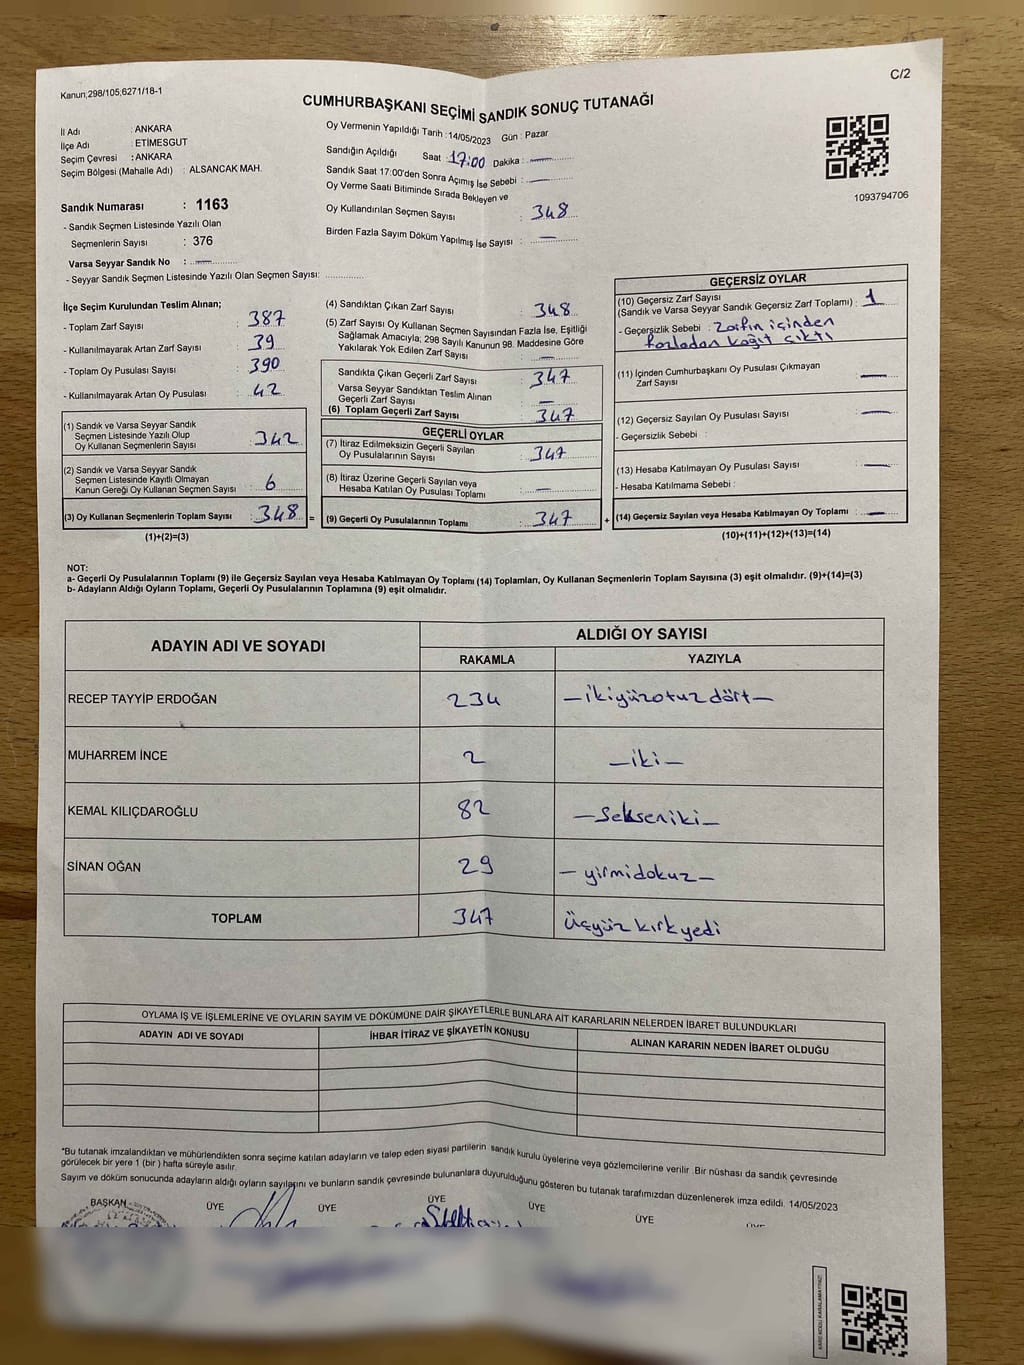 C/2
Kanun;298/105,6271/18-1
CUMHURBAŞKANI SEÇİMİ SANDIK SONUÇ TUTANAĞI
İl Adı : ANKARA
İlçe Adı : ETİMESGUT
Seçim Çevresi : ANKARA
Seçim Bölgesi (Mahalle Adı) : ALSANCAK MAH.
Sandık Numarası : 1163
- Sandık Seçmen Listesinde Yazılı Olan
Seçmenlerin Sayısı : 376
Varsa Seyyar Sandık No : —
- Seyyar Sandık Seçmen Listesinde Yazılı Olan Seçmen Sayısı: ..............
Oy Vermenin Yapıldığı Tarih : 14/05/2023 Gün : Pazar
Sandığın Açıldığı Saat : 17:00 Dakika : —
Sandık Saat 17:00'den Sonra Açımış İse Sebebi : —
Oy Verme Saati Bitiminde Sırada Bekleyen ve
Oy Kullandırılan Seçmen Sayısı : 348
Birden Fazla Sayım Döküm Yapılmış İse Sayısı : —
1093794706
İlçe Seçim Kurulundan Teslim Alınan;
- Toplam Zarf Sayısı : 387
- Kullanılmayarak Artan Zarf Sayısı : 39
- Toplam Oy Pusulası Sayısı : 390
- Kullanılmayarak Artan Oy Pusulası : 42
(1) Sandık ve Varsa Seyyar Sandık
Seçmen Listesinde Yazılı Olup
Oy Kullanan Seçmenlerin Sayısı : 342
(2) Sandık ve Varsa Seyyar Sandık
Seçmen Listesinde Kayıtlı Olmayan
Kanun Gereği Oy Kullanan Seçmen Sayısı : 6
(3) Oy Kullanan Seçmenlerin Toplam Sayısı : 348 =
(1)+(2)=(3)
(4) Sandıktan Çıkan Zarf Sayısı : 348
(5) Zarf Sayısı Oy Kullanan Seçmen Sayısından Fazla İse, Eşitliği
Sağlamak Amacıyla; 298 Sayılı Kanunun 98. Maddesine Göre
Yakılarak Yok Edilen Zarf Sayısı : —
Sandıkta Çıkan Geçerli Zarf Sayısı : 347
Varsa Seyyar Sandıktan Teslim Alınan
Geçerli Zarf Sayısı : —
(6) Toplam Geçerli Zarf Sayısı : 347
GEÇERLİ OYLAR
(7) İtiraz Edilmeksizin Geçerli Sayılan
Oy Pusulalarının Sayısı : 347
(8) İtiraz Üzerine Geçerli Sayılan veya
Hesaba Katılan Oy Pusulası Toplamı : —
(9) Geçerli Oy Pusulalarının Toplamı : 347 +
GEÇERSİZ OYLAR
(10) Geçersiz Zarf Sayısı
(Sandık ve Varsa Seyyar Sandık Geçersiz Zarf Toplamı) : 1
- Geçersizlik Sebebi : Zarfın içinden
fazladan kağıt çıktı
(11) İçinden Cumhurbaşkanı Oy Pusulası Çıkmayan
Zarf Sayısı : —
(12) Geçersiz Sayılan Oy Pusulası Sayısı : —
- Geçersizlik Sebebi :
(13) Hesaba Katılmayan Oy Pusulası Sayısı : —
- Hesaba Katılmama Sebebi :
(14) Geçersiz Sayılan veya Hesaba Katılmayan Oy Toplamı : —
(10)+(11)+(12)+(13)=(14)
NOT:
a- Geçerli Oy Pusulalarının Toplamı (9) ile Geçersiz Sayılan veya Hesaba Katılmayan Oy Toplamı (14) Toplamları, Oy Kullanan Seçmenlerin Toplam Sayısına (3) eşit olmalıdır. (9)+(14)=(3)
b- Adayların Aldığı Oyların Toplamı, Geçerli Oy Pusulalarının Toplamına (9) eşit olmalıdır.
ADAYIN ADI VE SOYADI ALDIĞI OY SAYISI
RAKAMLA YAZIYLA
RECEP TAYYİP ERDOĞAN 234 —ikiyüzotuzdört—
MUHARREM İNCE 2 —iki—
KEMAL KILIÇDAROĞLU 82 —Sekseniki—
SİNAN OĞAN 29 —yirmidokuz—
TOPLAM 347 Üçyüz kırkyedi
OYLAMA İŞ VE İŞLEMLERİNE VE OYLARIN SAYIM VE DÖKÜMÜNE DAİR ŞİKAYETLERLE BUNLARA AİT KARARLARIN NELERDEN İBARET BULUNDUKLARI
ADAYIN ADI VE SOYADI İHBAR İTİRAZ VE ŞİKAYETİN KONUSU ALINAN KARARIN NEDEN İBARET OLDUĞU
*Bu tutanak imzalandıktan ve mühürlendikten sonra seçime katılan adayların ve talep eden siyasi partilerin sandık kurulu üyelerine veya gözlemcilerine verilir. Bir nüshası da sandık çevresinde
görülecek bir yere 1 (bir ) hafta süreyle asılır.
Sayım ve döküm sonucunda adayların aldığı oyların sayılarını ve bunların sandık çevresinde bulunanlara duyurulduğunu gösteren bu tutanak tarafımızdan düzenlenerek imza edildi. 14/05/2023
BAŞKAN ÜYE ÜYE ÜYE ÜYE ÜYE